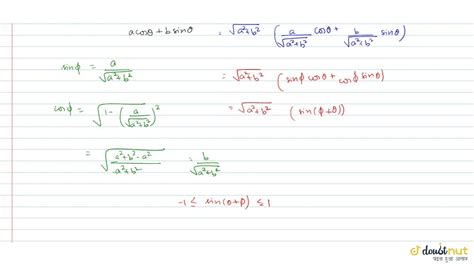 a cosθ + b sinθ = √a²+b² (a/√a²+b² cosθ + b/√a²+b² sinθ)
sinϕ = a/√a²+b² = √a²+b² (sinϕ cosθ + cosϕ sinθ)
cosϕ = √1-(a/√a²+b²)² = √a²+b² (sin(ϕ+θ))
= √a²+b²-a²/a²+b² = b/√a²+b²
-1 ≤ sin(θ+ϕ) ≤ 1
doubtnut
पढ़ना हुआ आसान